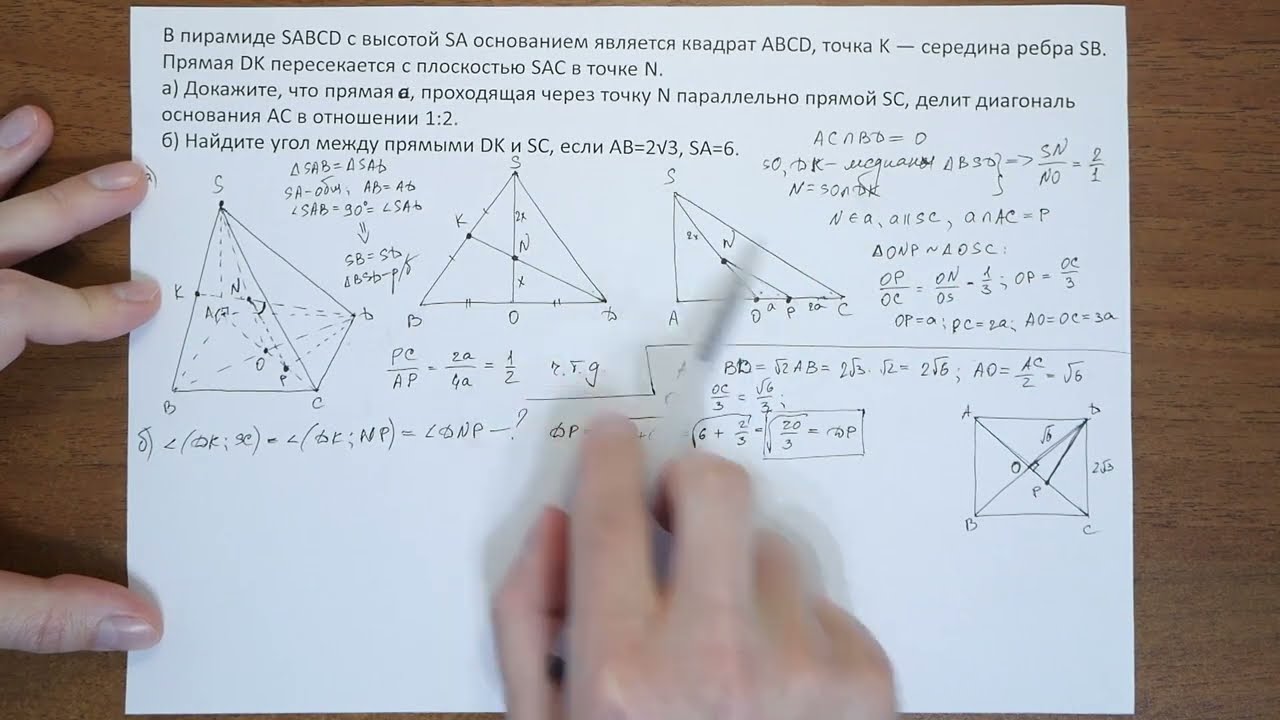 В пирамиде SABCD с высотой SA основанием является квадрат ABCD, точка K — середина ребра SB.
Прямая DK пересекается с плоскостью SAC в точке N.
а) Докажите, что прямая a, проходящая через точку N параллельно прямой SC, делит диагональ
основания AC в отношении 1:2.
б) Найдите угол между прямыми DK и SC, если AB=2√3, SA=6.
ΔSAB = ΔSAD
SA-общ, AB = AD
∠SAB = 90° = ∠SAD
⇓
SB = SD
ΔBSD - р/б
AC ∩ BD = O
SO, DK - медианы ΔBSD } => SN/NO = 2/1
N = SO ∩ DK
N ∈ a, a || SC, a ∩ AC = P
ΔONP ~ ΔOSC:
OP/OC = ON/OS = 1/3; OP = OC/3
OP = a; PC = 2a; AO = OC = 3a
S
K
N
A
D
O
P
B
C
S
K
2x
N
x
B
O
D
S
2x
N
A
O
a
P
2a
C
PC/AP = 2a/4a = 1/2 ч.т.д
BD = √2 AB = 2√3 · √2 = 2√6; AO = AC/2 = √6
OC/3 = √6/3;
б) ∠(DK; SC) = ∠(DK; NP) = ∠DNP - ?
DP = √6 + 2/3 = √20/3 = DP
A
D
√6
O
2√3
P
B
C